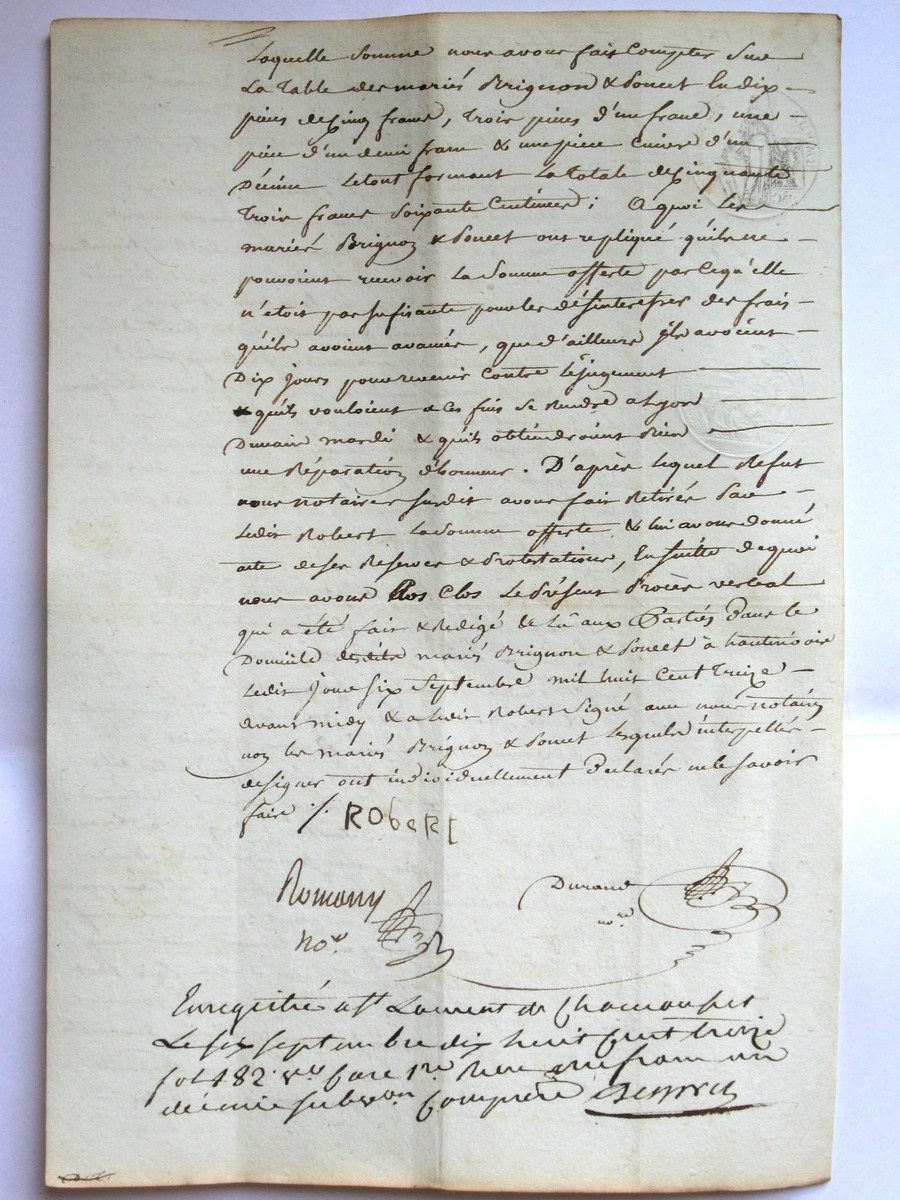 Laquelle Somme nous avons fait Compter Sur
La Table des mariés Brignon & Poncet En dix
pièces de Cinq francs, trois pièces d'un franc, une
pièce d'un demi franc & une pièce Cuivre d'un
Décime Le tout formant La totale de Cinquante
trois francs Soixante Centimes; A quoi les
mariés Brignon & Poncet ont repliqué qu'ils ne
pouvoient recevoir La Somme offerte parcequ'elle
n'etoit pas sufisante pour les désinteresser des frais
qu'ils avoient avancés, que d'ailleurs ils avoient
Dix jours pour revenir Contre Le jugement
& qu'ils vouloient a ces fins Se Rendre a Lyon
Demain mardi & qu'ils obtiendroient Bien
une Réparation d'honneur. D'après lequel Refus
nous notaires susdit avons fait Retirer Par
Ledit Robert La Somme offerte & lui avons donné
acte de ses Reserves & Protestations, Ensuite de quoi
nous avons Clos Le Présent Procès verbal
qui a été fait & Redigé & Lu aux Parties Dans le
Domicile desdits mariés Brignon & Poncet à hauterivoire
Ledit Jour Six Septembre mil huit Cent Treize
avant midy & a Ledit Robert Signé avec nous notaires
non les mariés Brignon & Poncet Lesquels interpellés
de signer ont individuellement Déclarés ne le Savoir
faire ./.
RObeRt
Durand
nore
Romany
nore
Enregistré a St Laurent de Chamousset
Le six septembre dix huit Cent treize
fol 182 vo Case 1re Reçu un franc un
décime subvon Comprise